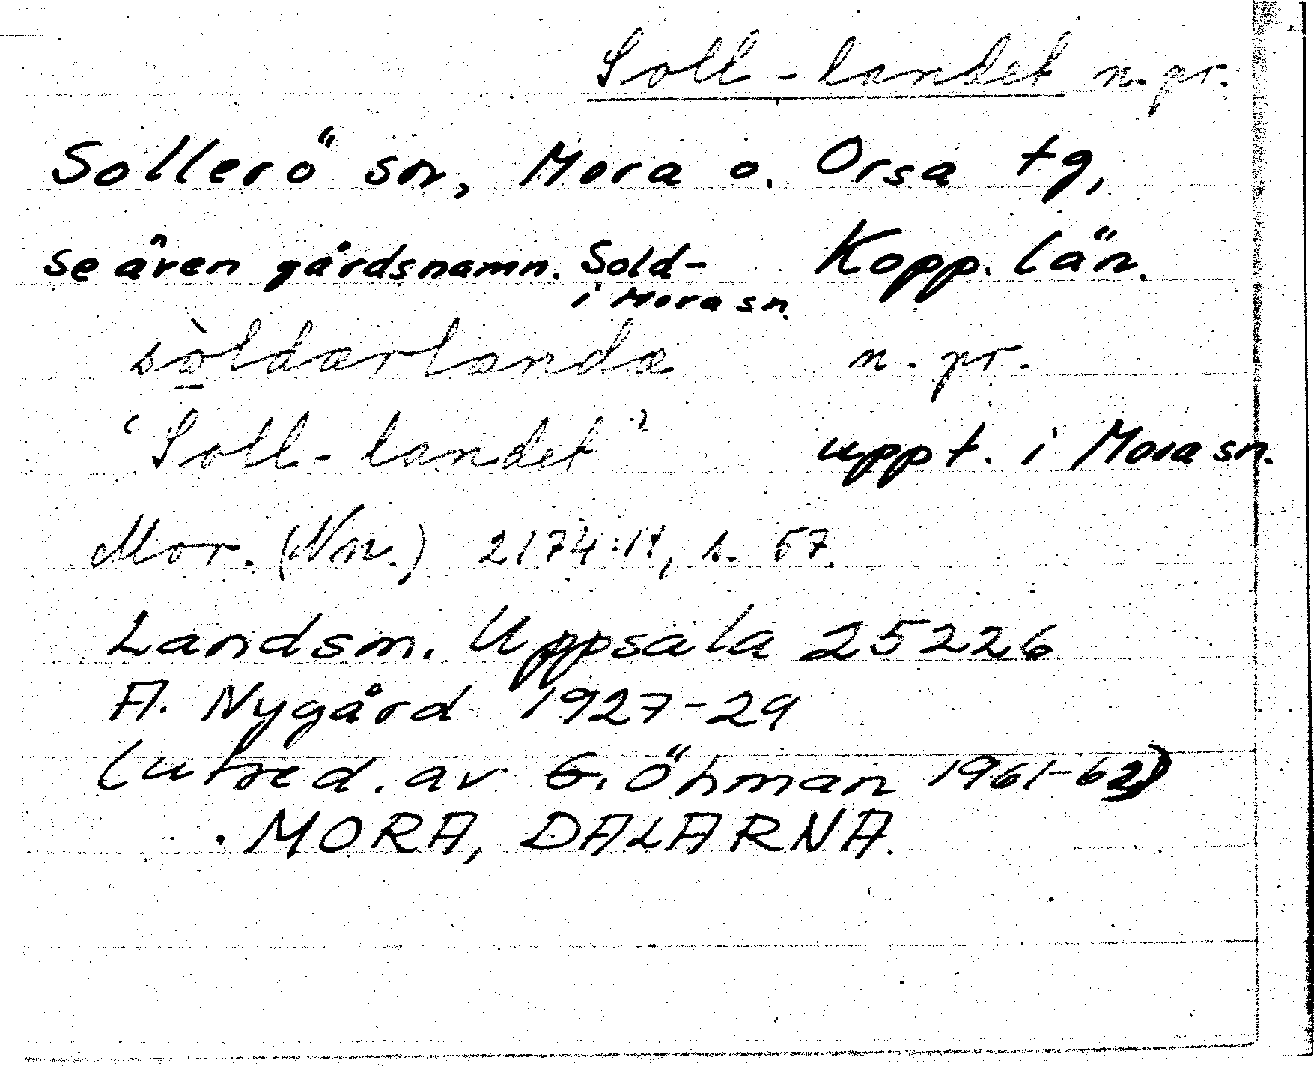 Soll-landet n.pr.
Sollerö sn, Mora o. Orsa tg,
se även gårdsnamn. Sold- Kopp. län.
i Mora sn.
sòldarlandä n. pr.
'Soll-landet' uppt. i Mora sn.
Mor. (Nn.) 2174:14, s. 57.
Landsm. Uppsala 25226
A. Nygård 1927-29
(utred. av G. Öhman 1961-62)
. MORA, DALARNA.